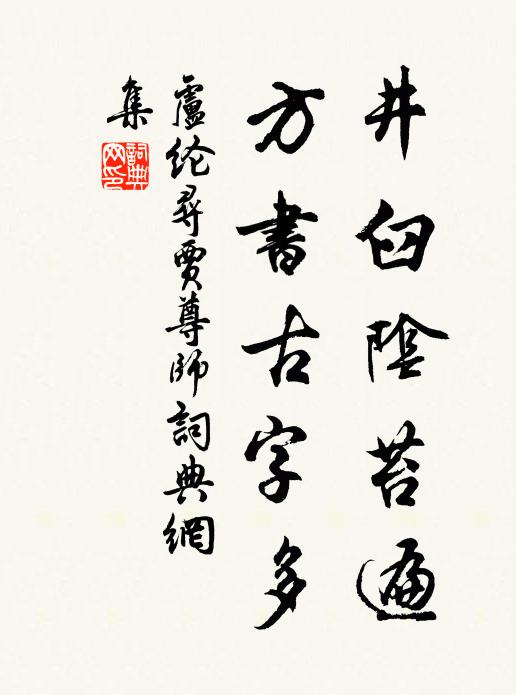 井臼陰苔遍
方書古字多
盧纶尋賈尊師詞典網
集
詞典
网印